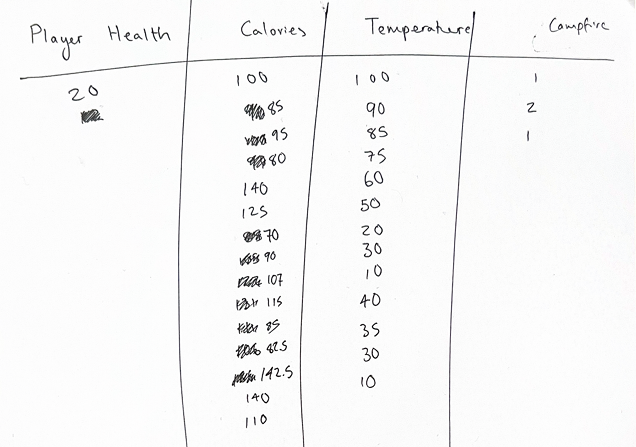 Player Health Calories Temperature Campfire
20 100 100 1
85 90 2
95 85 1
80 75
140 60
125 50
70 20
90 30
107 10
115 40
85 35
82.5 30
142.5 10
140
110